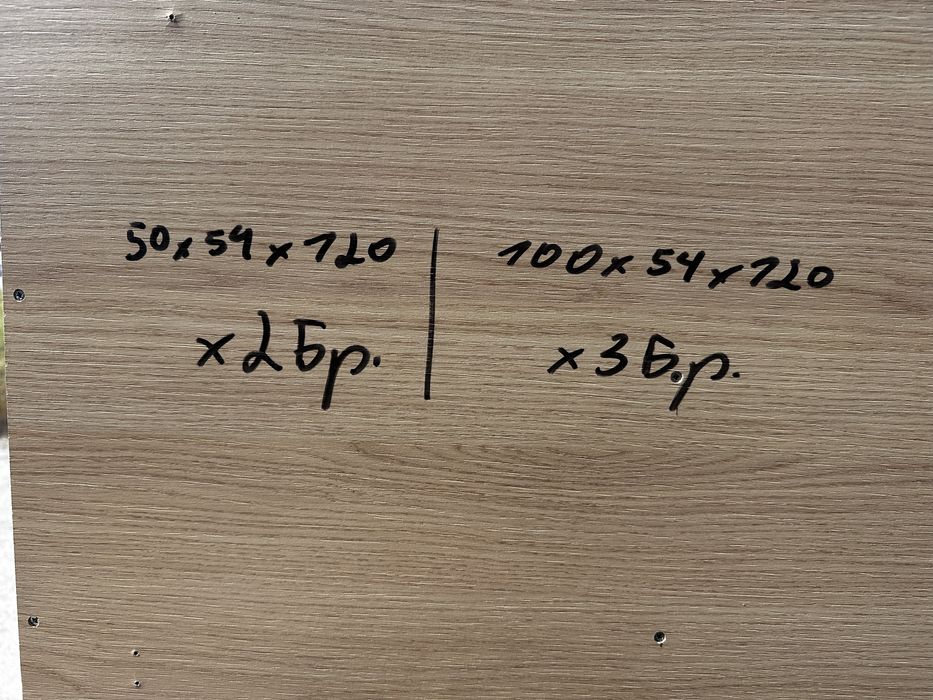 50x54x120
x2бр.
100x54x120
x3б.р.